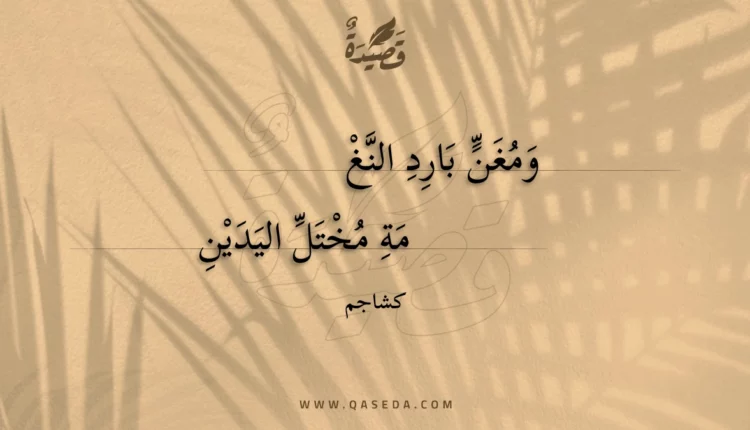 قَصِيْدَةٌ
وَمُغَنٍّ بَارِدِ النَّغْ
مَةِ مُخْتَلِّ اليَدَيْنِ
كشاجم
WWW.QASEDA.COM